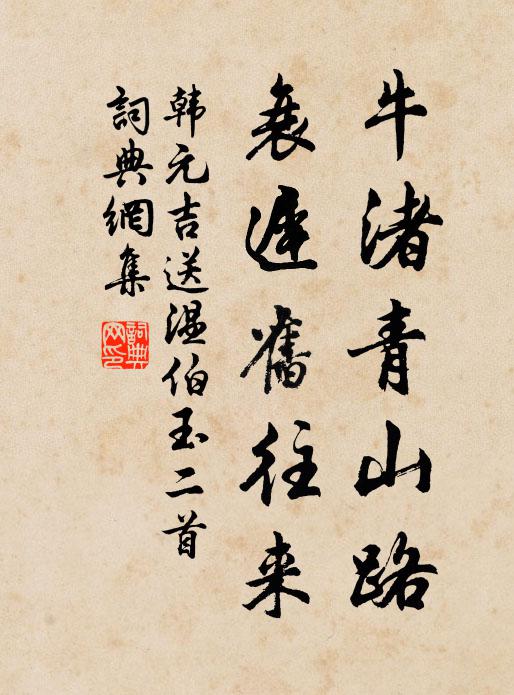 牛渚青山路
衰遲舊往来
韩元吉送温伯玉二首
詞典網集
詞典网印